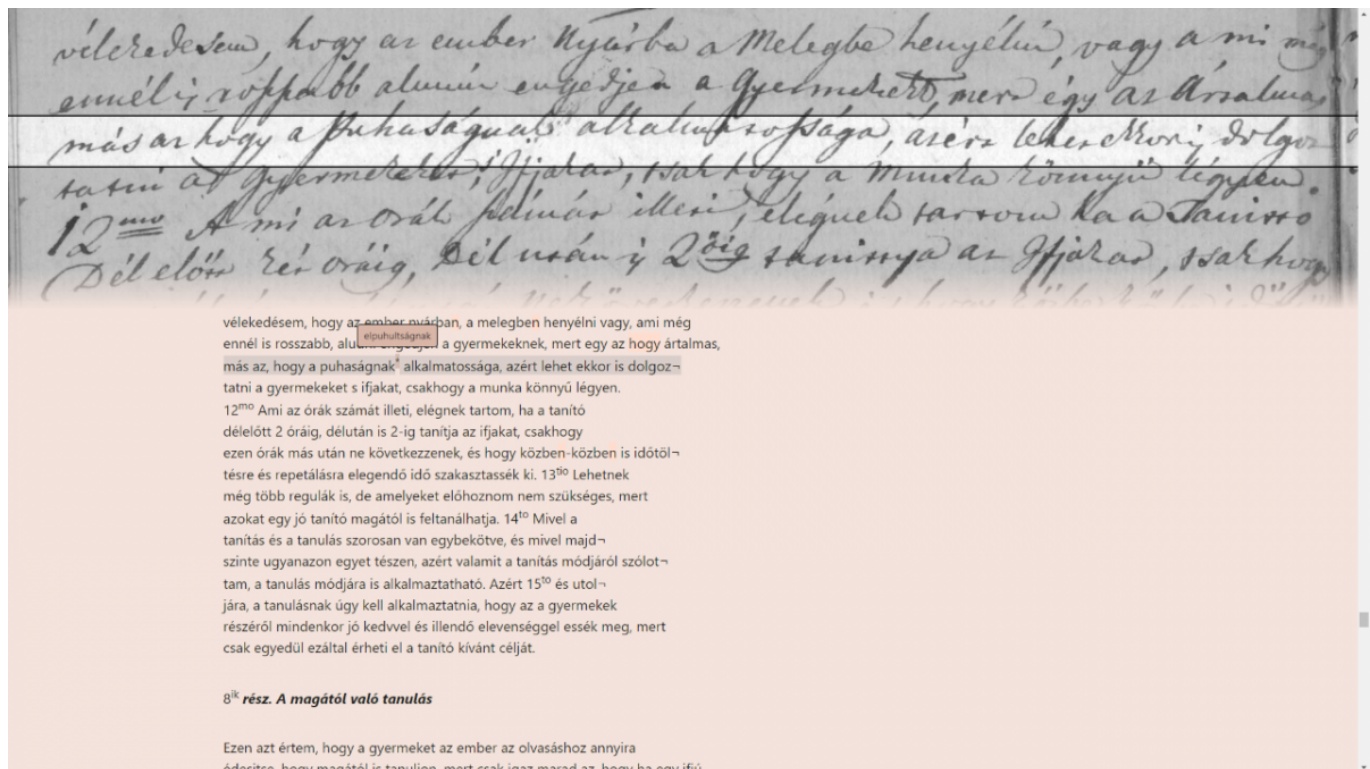 vélekedesem, hogy az ember Nyárba a Melegbe henyélni, vagy a mi még
ennél is roszszabb alunni engedjen a Gyermekekt, mert egy az Ártalmas
más az hogy a puhaságnak alkalmatossága, azért lehet ekkor is dolgoz
tatni a' Gyermekeket, s Ifjakat, tsak hogy a munka könnyü légyen.
12mo A mi az orák számát illeti, elégnek tartom ha a Tanitto
Dél előtt két oráig, Dél után is 2őig tanittya az Ifjakat, tsak hogy
vélekedésem, hogy az ember nyárban, a melegben henyélni vagy, ami még
elpuhultságnak
ennél is rosszabb, a gyermekeknek, mert egy az hogy ártalmas,
más az, hogy a puhaságnak* alkalmatossága, azért lehet ekkor is dolgoz¬
tatni a gyermekeket s ifjakat, csakhogy a munka könnyú légyen.
12mo Ami az órák számát illeti, elégnek tartom, ha a tanító
délelőtt 2 óráig, délután is 2-ig tanítja az ifjakat, csakhogy
ezen órák más után ne következzenek, és hogy közben-közben is időtöl¬
tésre és repetálásra elegendő idő szakasztassék ki. 13tio Lehetnek
még több regulák is, de amelyeket előhoznom nem szükséges, mert
azokat egy jó tanító magától is feltanálhatja. 14to Mivel a
tanítás és a tanulás szorosan van egybekötve, és mivel majd¬
szinte ugyanazon egyet tészen, azért valamit a tanítás módjáról szólot¬
tam, a tanulás módjára is alkalmaztatható. Azért 15to és utol¬
jára, a tanulásnak úgy kell alkalmaztatnia, hogy az a gyermekek
részéről mindenkor jó kedvvel és illendő elevenséggel essék meg, mert
csak egyedül ezáltal érheti el a tanító kívánt célját.
8ik rész. A magától való tanulás
Ezen azt értem, hogy a gyermeket az ember az olvasáshoz annyira
édesítse, hogy magától is tanuljon, mert csak igaz marad az, hogy ha egy ifjú